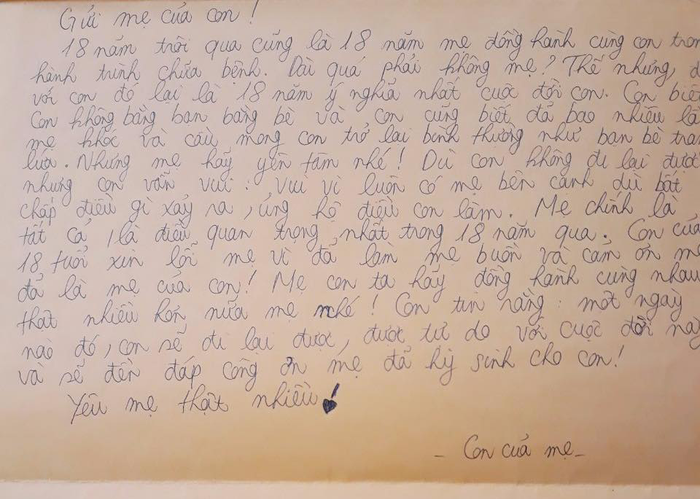 Gửi mẹ của con !
18 năm trôi qua cũng là 18 năm mẹ đồng hành cùng con tron
hành trình chữa bệnh. Dài quá phải không mẹ? Thế nhưng, đ
với con đó lại là 18 năm ý nghĩa nhất cuộc đời con. Con biế
con không bằng bạn bằng bè và con cũng biết đã bao nhiêu lầ
mẹ khóc và cầu mong con trở lại bình thường như bạn bè tran
lứa. Nhưng mẹ hãy yên tâm nhé! Dù con không đi lại đượ
nhưng con vẫn vui : vui vì luôn có mẹ bên cạnh dù bất
chấp điều gì xảy ra, ủng hộ điều con làm. Mẹ chính là
tất cả, là điều quan trọng nhất trong 18 năm qua. Con của
18 tuổi xin lỗi mẹ vì đã làm mẹ buồn và cảm ơn mẹ
đã là mẹ của con! Mẹ con ta hãy đồng hành cùng nhau
thật nhiều hơn nữa mẹ nhé! Con tin rằng một ngày
nào đó, con sẽ đi lại được, được tự do với cuộc đời này
và sẽ đền đáp công ơn mẹ đã hy sinh cho con!
Yêu mẹ thật nhiều!
- Con của mẹ -